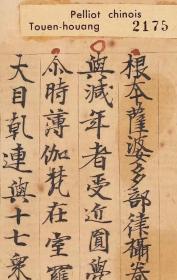 Pelliot chinois
Touen-houang 2175
根本薩婆多部律攝卷
與減年者受近圓學
尒時薄伽梵在室羅
大目乹連與十七衆